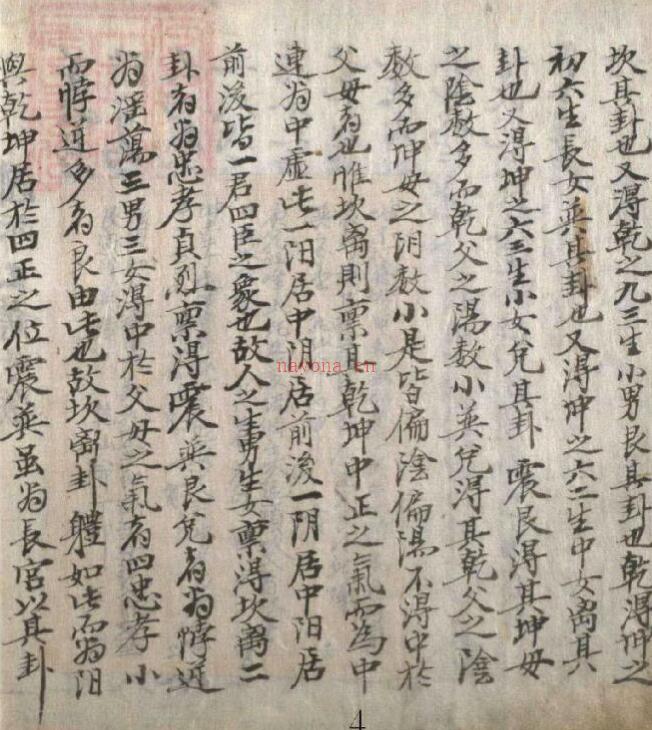 坎其卦也又得乾之九三生小男艮其卦也乾得坤之
初六生長女巽其卦也又得坤之六二生中女离其
卦也又得坤之六三生小女兌其卦 震艮得其坤母
之陰数多而乾父之陽数小巽兌得其乾父之陰
数多而坤母之阴数小是皆偏陰偏陽不得中於
父母者也惟坎离則禀其乾坤中正之氣而為中
連為中虚比一阳居中阴居前後一阴居中阳居
前後皆一君四臣之象也故人之生男生女禀得坎离二
卦者為忠孝貞烈禀得震巽艮兌者為悖逆
為滛蕩三男三女得中於父母之氣者四忠孝小
而悖逆多者良由此也故坎离卦軆如此而為阳
與乾坤居於四正之位震巽虽為長官以其卦
nayona.cn
4